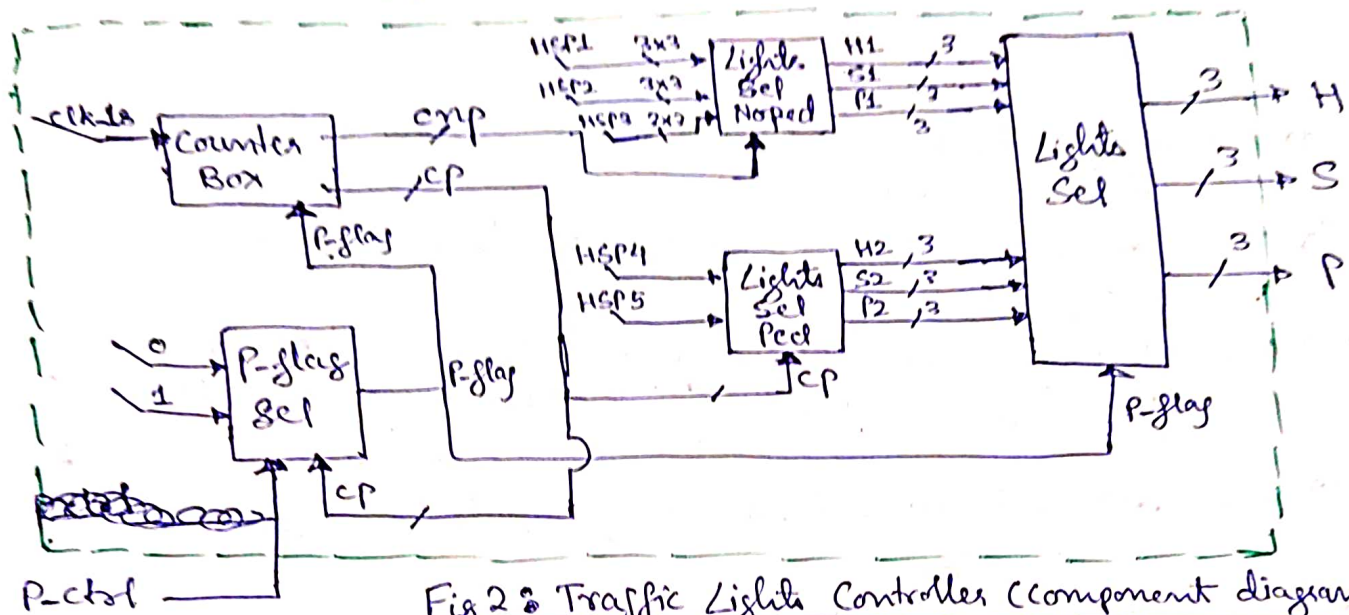 clk_1s
Counter
Box
cnp
cp
P-flag
HSP1
3x3
HSP2
3x3
HSP3
3x3
Lights
Sel
Noped
H1
3
S1
3
P1
3
HSP4
HSP5
Lights
Sel
Ped
cp
H2
3
S2
3
P2
3
Lights
Sel
P-flag
3
H
3
S
3
P
0
1
P-flag
Sel
P-flag
cp
P-ctrl
Fig 2: Traffic Lights Controller (component diagram